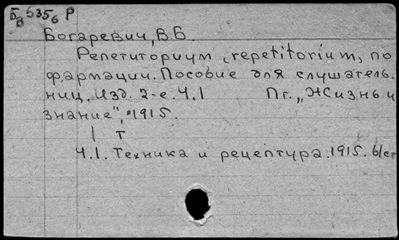 Б 6356 Р
в
Богаревич, В.В.
Репетиториум (repetitorium, по
фармации. Пособие для слушатель-
ниц. Изд. 2-е. Ч.1 Пг., „Жизнь и
знание", 1915.
1 т
Ч.1. Техника и рецептура. 1915. б/ст